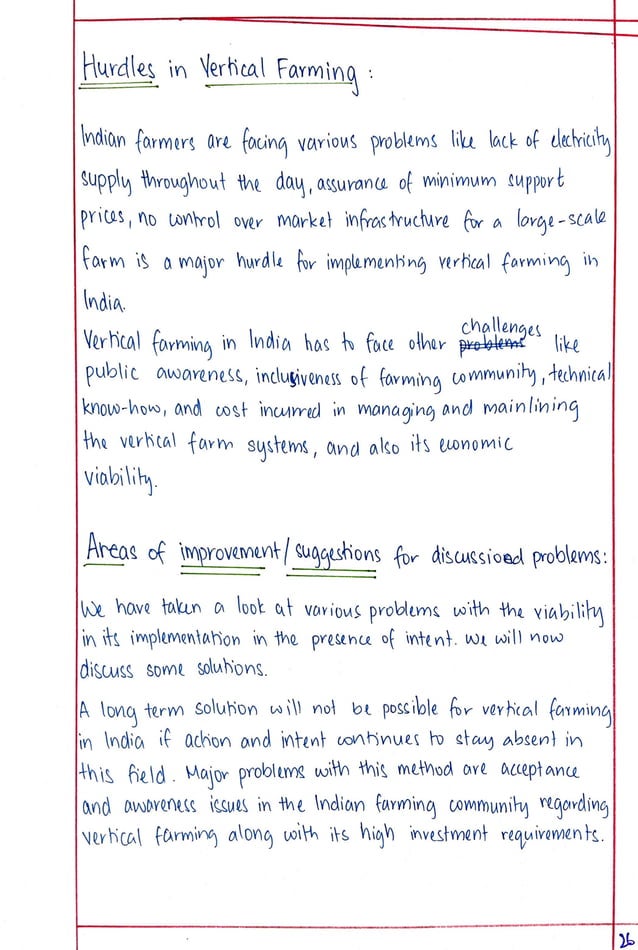 Hurdles in Vertical Farming :
Indian farmers are facing various problems like lack of electricity
supply throughout the day, assurance of minimum support
prices, no control over market infrastructure for a large-scale
farm is a major hurdle for implementing vertical farming in
India.
Vertical farming in India has to face other problems challenges like
public awareness, inclusiveness of farming community, technical
know-how, and cost incurred in managing and mainlining
the vertical farm systems, and also its economic
viability.
Areas of improvement/suggestions for discussioed problems:
We have taken a look at various problems with the viability
in its implementation in the presence of intent. We will now
discuss some solutions.
A long term solution will not be possible for vertical farming
in India if action and intent continues to stay absent in
this field. Major problems with this method are acceptance
and awareness issues in the Indian farming community regarding
vertical farming along with its high investment requirements.
26